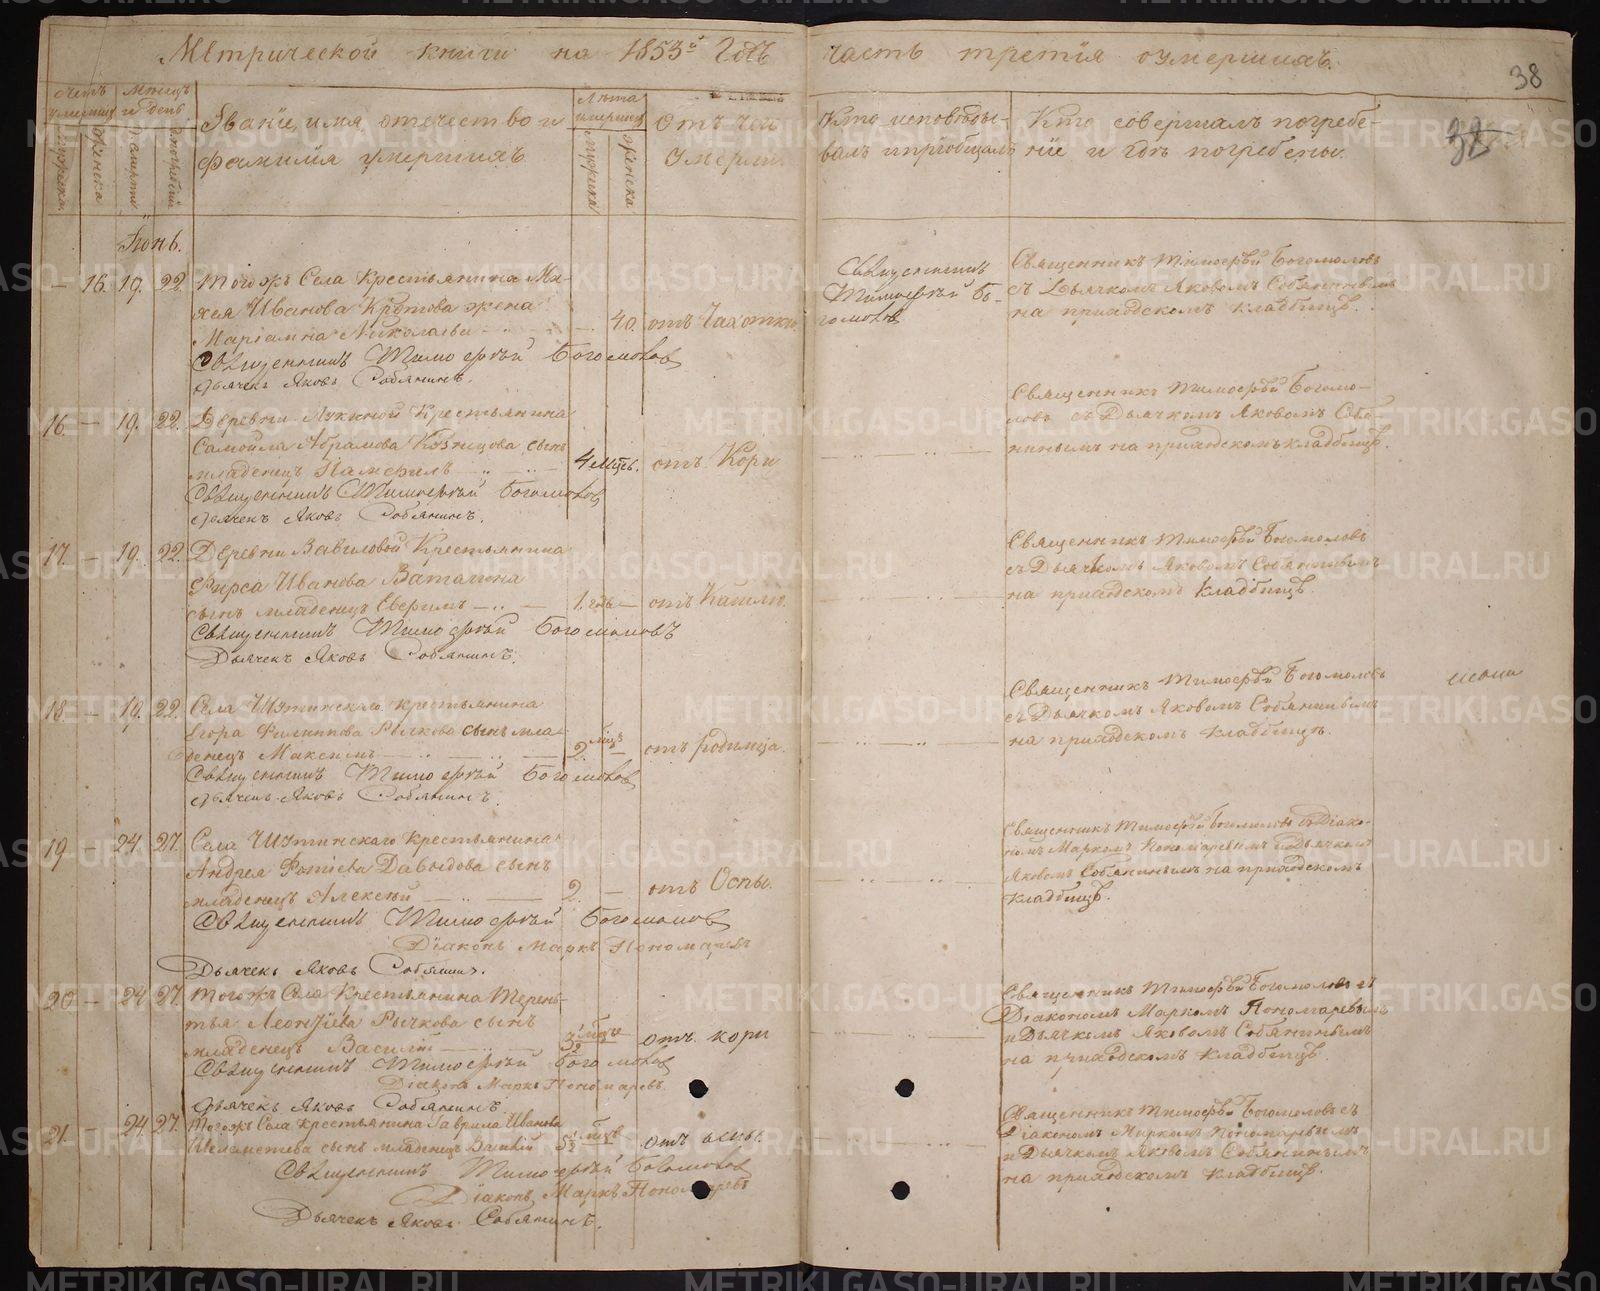 Метрической книги на 1853й Годъ часть третія оумершихъ.
38
Счетъ умершихъ
Мужеска
Женска
Мѣсяцъ и день
смерти
погребенія
Званіе, имя, отечество и фамилія умершихъ
Лѣта умершихъ
Мужска
Женска
Отъ чего умерли
Кто исповѣдывалъ и пріобщалъ
Кто совершалъ погребеніе и гдѣ погребены.
38
Іюнь.
— 16. 19. 22. Тогожъ Села Крестьянина Ми-
хея Иванова Кротова жена
Маріамна Николаева — 40. отъ Чахотки
Священникъ Тимофѣй Богомолов
Дьячекъ Яковъ Собянинъ.
Священникъ
Тимофѣй Бо-
гомолов
Священникъ Тимофѣй Богомоловъ
съ Дьячкомъ Яковомъ Собянинымъ
на приходскомъ кладбищѣ.
16. — 19. 22. Деревни Лукиной Крестьянина
Самойла Абрамова Кузнецова сынъ
младенецъ Памфилъ 4 мѣс. отъ Кори
Священникъ Тимофѣй Богомолов
Дьячекъ Яковъ Собянинъ.
Священникъ Тимофѣй Богомо-
ловъ съ Дьячкомъ Яковомъ Собя-
нинымъ на приходскомъ кладбищѣ.
17. — 19. 22. Деревни Вавиловой Крестьянина
Фирса Иванова Ваташна
сынъ младенецъ Ефремъ 1. годъ — отъ Кашлю.
Священникъ Тимофѣй Богомоловъ
Дьячекъ Яковъ Собянинъ.
Священникъ Тимофѣй Богомоловъ
съ Дьячкомъ Яковомъ Собянинымъ
на приходскомъ кладбищѣ.
18 — 19. 22. Села крестьянина
Егора Филиппова Рычкова сынъ мла-
денецъ Максимъ 2. мѣц — отъ родимца.
Священникъ Тимофѣй Богомолов
Дьячекъ Яковъ Собянинъ.
Священникъ Тимофѣй Богомоловъ
съ Дьячкомъ Яковомъ Собянинымъ
на приходскомъ кладбищѣ.
19 — 24. 27. Села Крестьянина
Андрея Фотіева Давыдова сынъ
младенецъ Алексѣй 2. — отъ Оспы.
Священникъ Тимофѣй Богомолов
Діаконъ Маркъ Пономаревъ
Дьячекъ Яковъ Собянинъ.
Священникъ Тимофѣй Богомоловъ съ Діако-
номъ Маркомъ Пономаревымъ и Дьячкомъ
Яковомъ Собянинымъ на приходскомъ
кладбищѣ.
20 — 24 27. Тогожъ Села Крестьянина Терень-
тья Леонтіева Рычкова сынъ
младенецъ Василій 3½ мѣце отъ кори
Священникъ Тимофѣй Богомолов
Діаконъ Маркъ Пономаревъ.
Дьячекъ Яковъ Собянинъ.
Священникъ Тимофѣй Богомоловъ съ
Діакономъ Маркомъ Пономаревымъ
и Дьячкомъ Яковомъ Собянинымъ
на приходскомъ кладбищѣ.
21. — 24. 27. Тогожъ Села Крестьянина Гаврила Иванова
Шелеметева сынъ младенецъ 5½ мѣце отъ оспы.
Священникъ Тимофѣй Богомолов
Діаконъ Маркъ Пономаревъ
Дьячекъ Яковъ Собянинъ.
Священникъ Тимофѣй Богомоловъ съ
Діакономъ Маркомъ Пономаревымъ
и Дьячкомъ Яковомъ Собянинымъ
на приходскомъ кладбищѣ.
METRIKI.GASO-URAL.RU